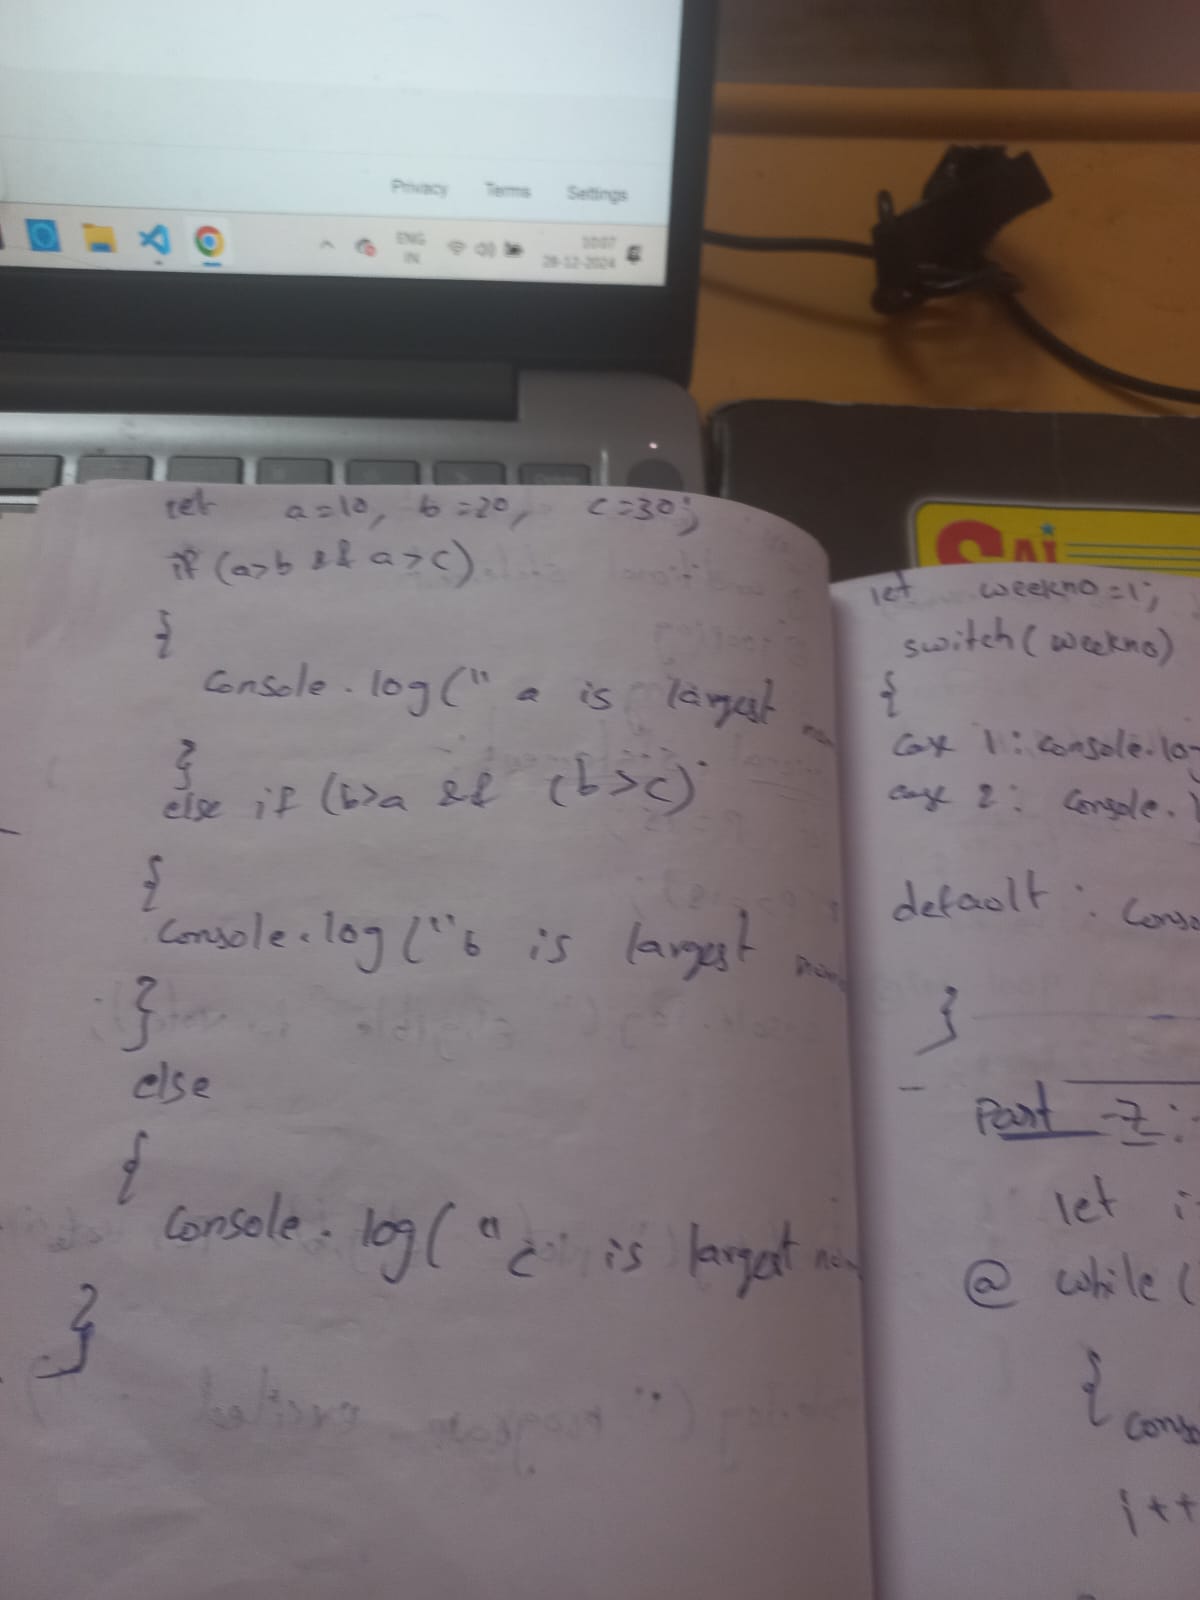 Privacy Terms Settings
ENG
IN
10:07
28-12-2024
SAI
let a=10, b=20, c=30;
if (a>b && a>c)
{
console.log(" a is largest
}
else if (b>a && (b>c)
{
console.log("b is largest
}
else
{
console.log("c is largest
}
let weekno=1;
switch(weekno)
{
case 1: console.log
case 2: console.
default: conso
}
Part -7:-
let i
@ while (
{
conso
i++